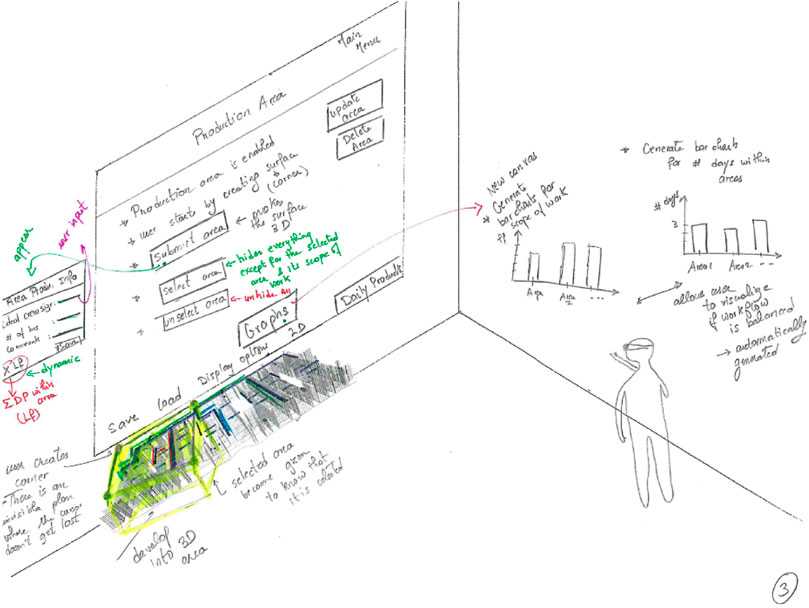 Main
Menu
Production Area
update
area
Delete
Area
* Production area is enabled
* user starts by creating surface
(corner)
* Submit area
makes
the surface
3D
* select area
hides everything
except for the selected
area & its scope of
work
* unselect area
unhide all
Graphs
2D
Daily Production
Save Load Display options
appear
user input
Area Produc. Info
ideal crew size:
# of hrs
comments:
X LF
dynamic
Σ DP within
area
(LF)
user creates
corner
- There is an
invisible plan
where the cursor
doesn't get lost
develop
into 3D
area
selected area
become green
to know that
it is selected
New canvas
* Generate
bar charts for
scope of work
ff
Area
Area
2
...
* Generate bar charts
for # days within
areas
# days
3
Area 1 Area 2 ...
allows user
to visualize
if workflow
is balanced
→ automatically
generated
3